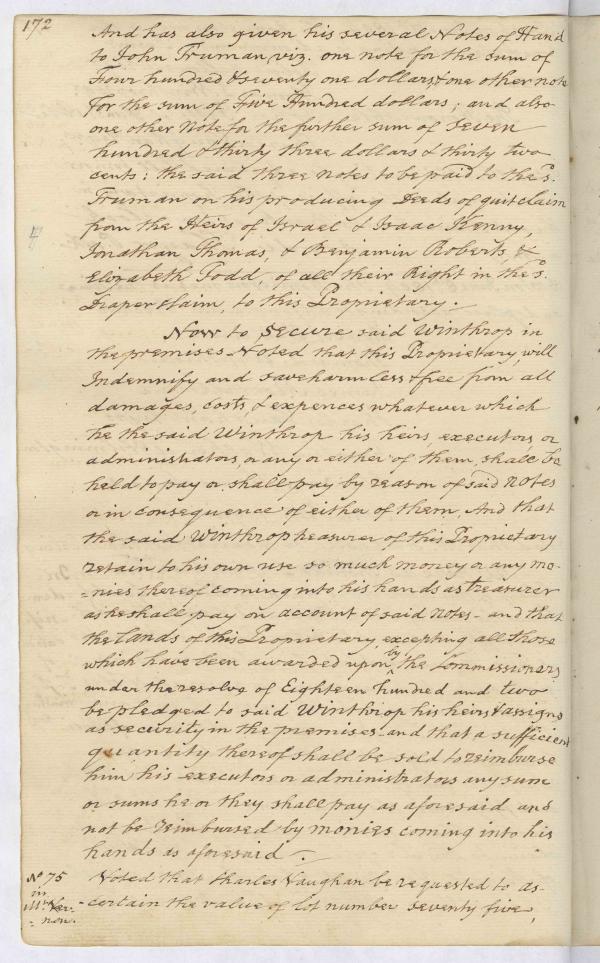 172
And has also given his several Notes of Hand
to John Truman, viz. one note for the sum of
Four hundred & seventy one dollars, & one other note
for the sum of Five Hundred dollars; and also
one other Note for the further sum of Seven
hundred & thirty three dollars & thirty two
cents: the said three notes to be paid to the sd.
Truman on his producing Deeds of quitclaim
from the Heirs of Israel & Isaac Kenny,
Jonathan Thomas, & Benjamin Roberts, &
Elizabeth Todd, of all their Right in the sd.
Draper Claim, to this Proprietary.
Now to Secure said Winthrop in
the premises Noted that this Proprietary, will
Indemnify and save harmless & free from all
damages, costs, & expences whatever which
he the said Winthrop his heirs, executors, or
administrators, or any or either of them, shall be
held to pay or shall pay by reason of said notes
or in consequence of either of them, And that
the said Winthrop treasurer of this Proprietary
retain to his own use so much money or any mo-
-nies thereof coming into his hands as treasurer
as he shall pay on account of said notes - and that
the Lands of this Proprietary, excepting all those
which have been awarded upon by the Commissioners
under the resolve of Eighteen hundred and two
be pledged to said Winthrop his heirs & assigns
as security in the premises and that a sufficient
quantity thereof shall be sold to reimburse
him his executors or administrators any sum
or sums he or they shall pay as aforesaid and
not be reimbursed by monies coming into his
hands as aforesaid.
No 75
in
Mt. Ver-
-non.
Voted that Charles Vaughan be requested to as-
-certain the value of lot number seventy five,